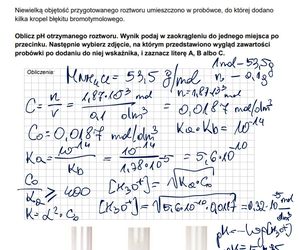 Niewielką objętość przygotowanego roztworu umieszczono w probówce, do której dodano
kilka kropel błękitu bromotymolowego.
Oblicz pH otrzymanego roztworu. Wynik podaj w zaokrągleniu do jednego miejsca po
przecinku. Następnie wybierz zdjęcie, na którym przedstawiono wygląd zawartości
probówki po dodaniu do niej wskaźnika, i zaznacz literę A, B albo C.
Obliczenia: M NH4Cl = 53,5 g/mol 1mol - 53,5g
n - 0,1g
C = n/V = 1,87·10⁻³ mol / 0,1 dm³ = 0,0187 mol/dm³
C₀ = 0,0187 mol/dm³ Ka·Kb = 10⁻¹⁴
Ka = 10⁻¹⁴ / Kb = 10⁻¹⁴ / 1,78·10⁻⁵ = 5,6·10⁻¹⁰
C₀ / ≥ 400 [H₃O⁺] = √Ka·C₀
K = α²·C₀ [H₃O⁺] = √5,6·10⁻¹⁰·0,0187 = 0,32·10⁻⁵
pH = -log[H₃O⁺]